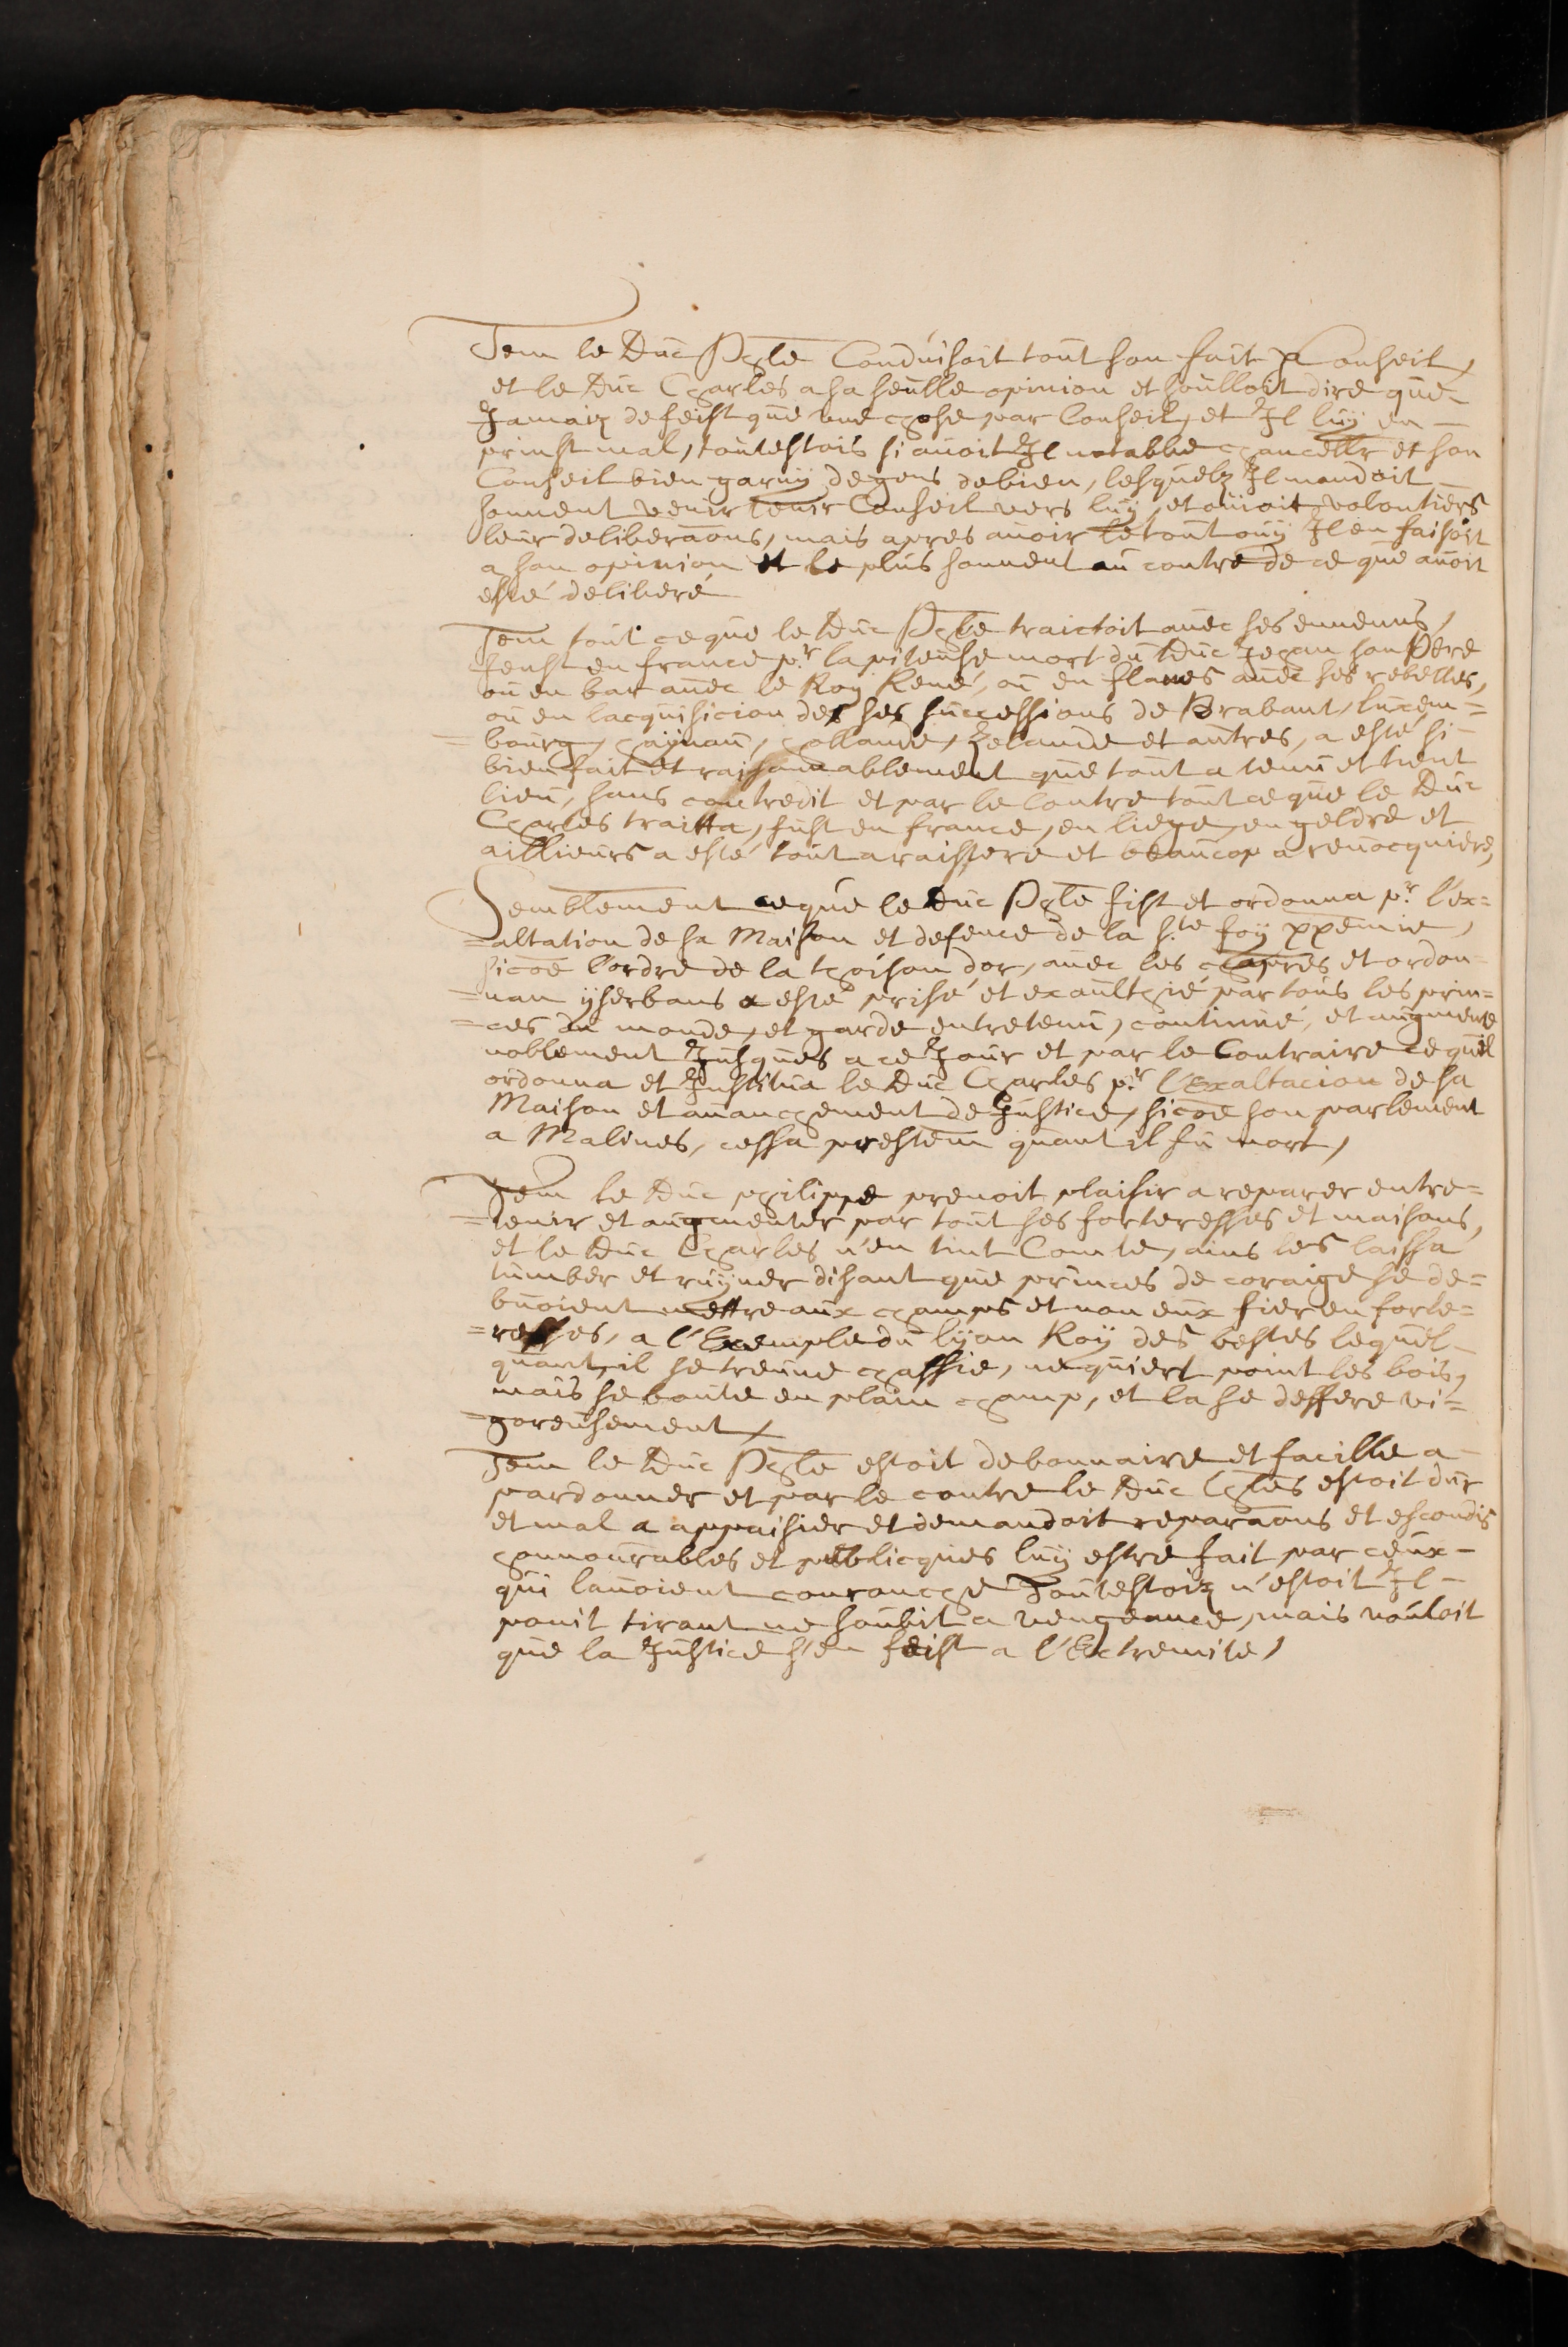 Item le Duc Phle Conduisoit tout son fait p Conseil,
et le Duc Charles a sa seulle opinion et soulloit dire que
Jamaiz ne feist que une chose par Conseil, et Il luÿ en
prinst mal, toutesfois si auoit Il notable chancellr et son
Conseil bien garnÿ de gens de bien, lesquelz Il mandoit
souuent venir tenir Conseil vers luÿ, et oüioit volontiers
leur deliberaons, mais apres auoir le tout ouÿ Il en faisoit
a son opinion et le plus souuent au contre de ce que auoit
esté deliberé
Item tout ce que le Duc Phle traictoit auec ses ennemis,
feust en france pr la piteuse mort du Duc Jehan son Pere
ou en bar auec le Roy René, ou en flanes auec ses rebelles,
ou en lacquisicion des ses successions de Brabant, luxem=
=bourg, haÿnau, hollande, Zelande et autres, a esté si
bien fait et raisonnablement que tout a tenu et tient
lieu, sans contredit et par le Contre tout ce que le Duc
Charles traitta, fust en france, en liege, en geldre et
aillieurs a esté tout a raissere et beaucop a reuocquiere,
Semblement ce que le Duc Phle fist et ordonna pr l'ex=
=altation de sa Maison et defence de la Ste foÿ xppenne,
sicōe l'ordre de la thoison dor, auec les chapres et ordon=
=nan ÿserbans a esté prisé et exaulthié par tous les prin=
=ces du monde, et garde entretenu, continué, et augmente
noblement Jusques a ce Jour et par le Contraire ce quil
ordonna et Institua le Duc Charles pr l'Exaltacion de sa
Maison et auanchement de Justice, sicōe son parlement
a Malines, cessa prestem quant il fu mort,
Item le Duc philippe prenoit plaisir a reparer entre=
=tenir et augmenter par tout ses forteresses et maisons,
et le Duc Charles n'en tint Comte, ains les laissa
tumber et ruÿner disant que princes de coraige se de=
buoient mettre aux champs et non eux fier en forte=
=resses, a l'Exemple du lÿon Roÿ des bestes lequel
quant il se treuue chassie, ne quiert point les bois,
mais se boute en plain champ, et la se deffere vi=
=goreusement
Item le Duc Phle estoit debonnaire et facille a
pardonner et par le contre le Duc Chles estoit dur
et mal a appaisier et demandoit reparaons et escondis
honnourables et publicques luÿ estre fait par ceux
qui lauoient couranche Toutesfoiz n'estoit Il
point tirant ne soubit a vengeance, mais vouloit
que la Justice s'en feist a l'Extremite,